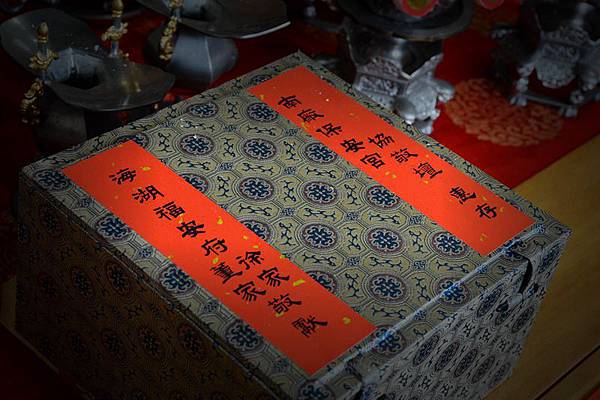 南廠保安宮
協敬壇
惠存
海湖福安府
徐家
董家
敬獻